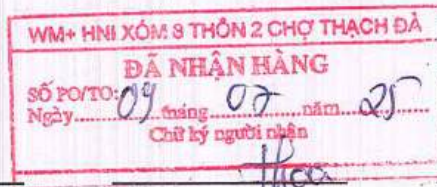 WM+ HNI XÓM 8 THÔN 2 CHỢ THẠCH ĐÀ
ĐÃ NHẬN HÀNG
SỐ PO/TO:
Ngày 09 tháng 07 năm 25
Chữ ký người nhận
Hoa